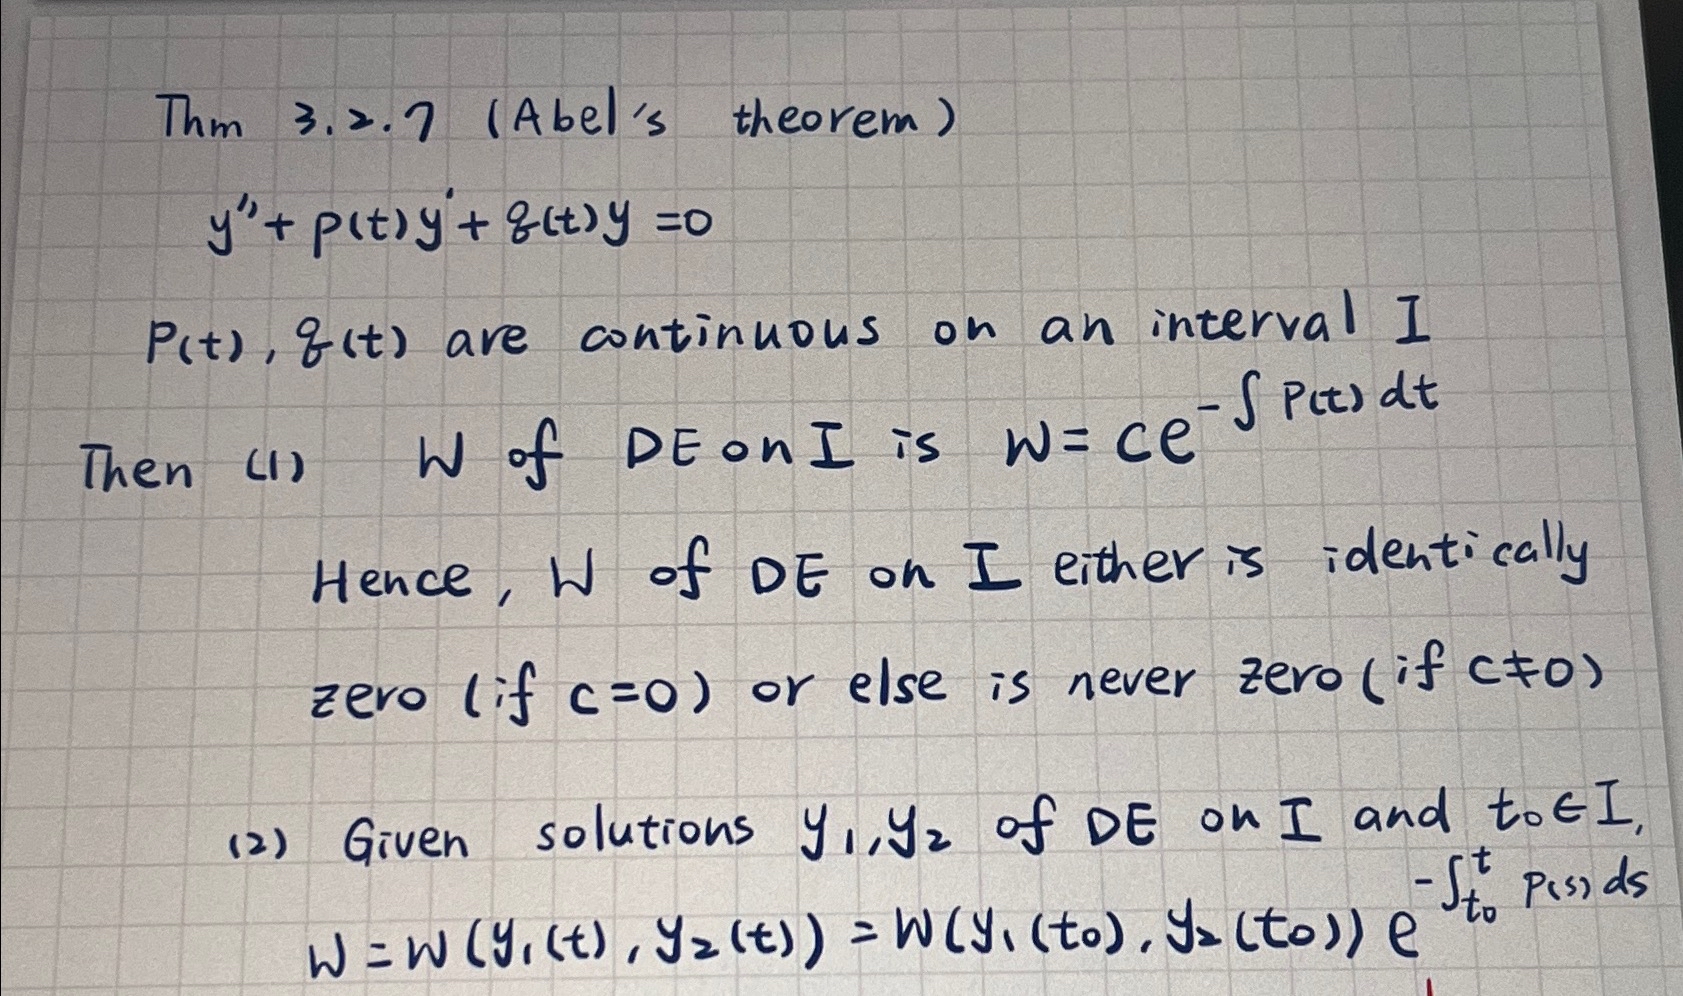 Thm 3.2.7 (Abel's theorem)
y''+ p(t)y'+ q(t)y =0
P(t), q(t) are continuous on an interval I
Then (1) W of DE on I is W= ce^{-∫ P(t) dt}
Hence, W of DE on I either is identically
zero (if c=0) or else is never zero (if c≠0)
(2) Given solutions y₁,y₂ of DE on I and t₀∈I,
W=W(y₁(t),y₂(t))=W(y₁(t₀),y₂(t₀)) e^{-∫_{t₀}^{t} P(s) ds}